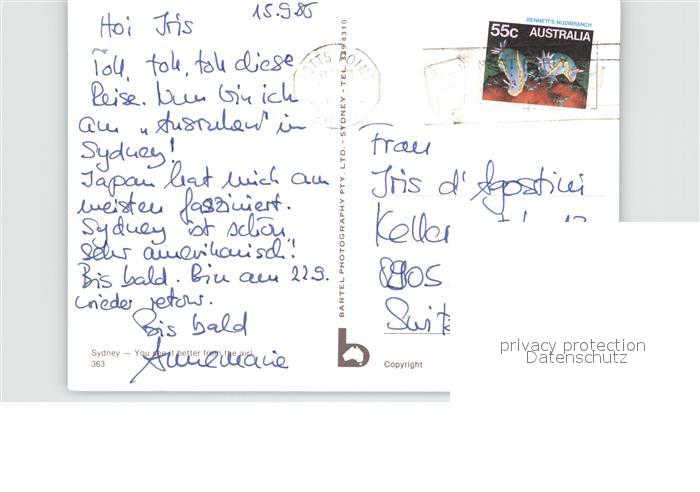 15.9.86
Hoi Iris
Toll, toll, toll diese
Reise. Nun bin ich
am „Ausruhen" in
Sydney!
Japan hat mich am
meisten fasziniert.
Sydney ist schön,
sehr amerikanisch!
Bis bald. Bin am 22.9.
wieder retour.
Bis bald
Annemarie
Sydney — You see it better from the air!
363
BARTEL PHOTOGRAPHY PTY. LTD. - SYDNEY - TEL. 339 8310
b
Copyright
OTTS POINT
BENNETT'S NUDIBRANCH
55c AUSTRALIA
Frau
Iris d'Agostini
Keller
8905
Swit
privacy protection
Datenschutz